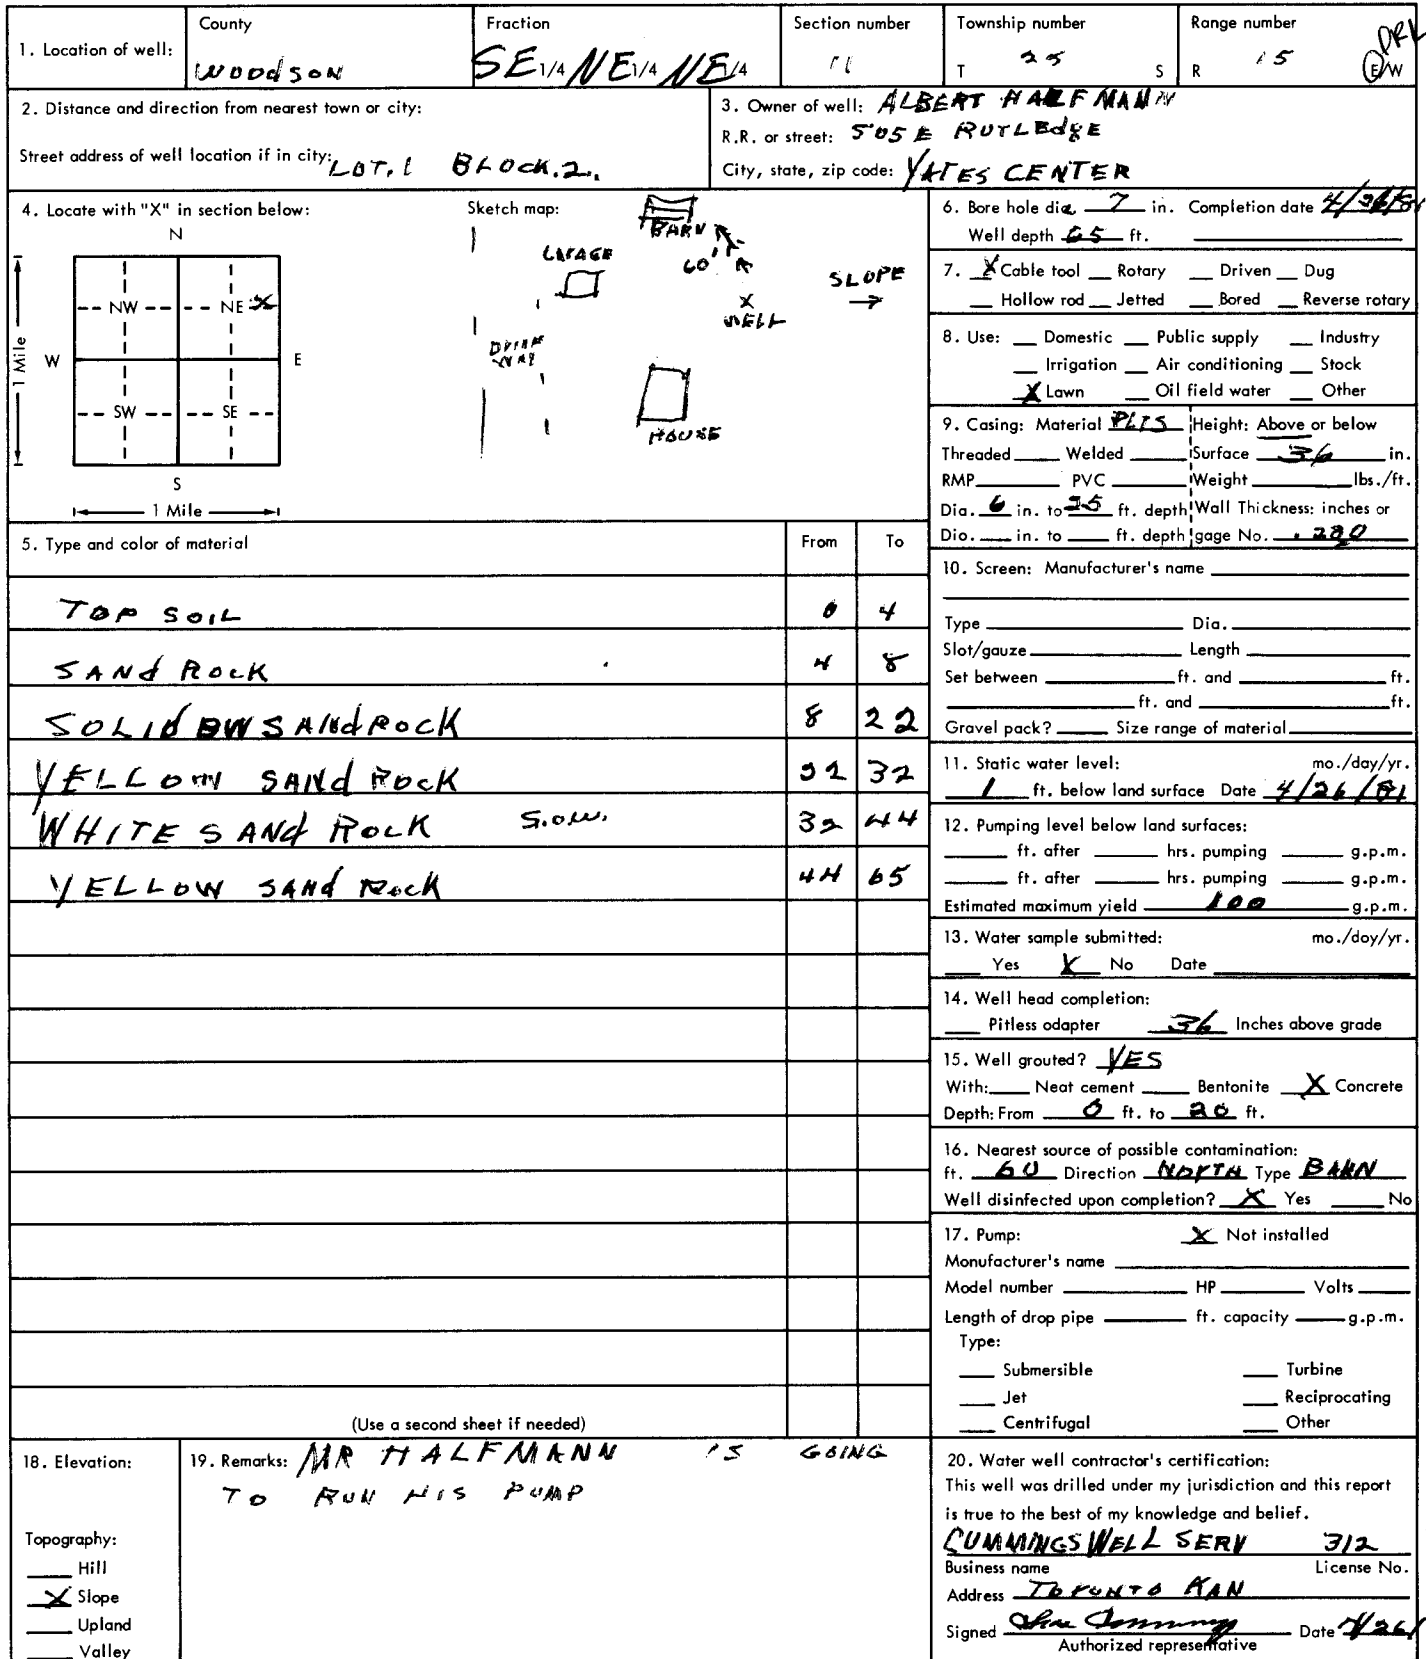 1. Location of well: County Fraction Section number Township number Range number
WOODSON SE 1/4 NE 1/4 NE 1/4 11 T 25 S R 15 E/W
DRL
2. Distance and direction from nearest town or city:
Street address of well location if in city: LOT.1 BLOCK.2.
3. Owner of well: ALBERT HALFMANN
R.R. or street: 505 E RUTLEdgE
City, state, zip code: YATES CENTER
4. Locate with "X" in section below:
N
NW NE X
W E
SW SE
S
1 Mile
1 Mile
Sketch map:
BARN
GARAGE
60'
SLOPE
X
WELL
DRIVE
WAY
HOUSE
5. Type and color of material From To
TOP SOIL 0 4
SANd ROCK 4 8
SOLId BW SANdROCK 8 22
YELLOW SANd ROCK 22 32
WHITE SANd ROCK S.O.W. 32 44
YELLOW SANd ROCK 44 65
(Use a second sheet if needed)
6. Bore hole dia. 7 in. Completion date 4/26/81
Well depth 65 ft.
7. X Cable tool Rotary Driven Dug
Hollow rod Jetted Bored Reverse rotary
8. Use: Domestic Public supply Industry
Irrigation Air conditioning Stock
X Lawn Oil field water Other
9. Casing: Material PLTS Height: Above or below
Threaded Welded Surface 36 in.
RMP PVC Weight lbs./ft.
Dia. 6 in. to 25 ft. depth Wall Thickness: inches or
Dia. in. to ft. depth gage No. .280
10. Screen: Manufacturer's name
Type Dia.
Slot/gauze Length
Set between ft. and ft.
ft. and ft.
Gravel pack? Size range of material
11. Static water level: mo./day/yr.
1 ft. below land surface Date 4/26/81
12. Pumping level below land surfaces:
ft. after hrs. pumping g.p.m.
ft. after hrs. pumping g.p.m.
Estimated maximum yield 100 g.p.m.
13. Water sample submitted: mo./day/yr.
Yes X No Date
14. Well head completion:
Pitless adapter 36 Inches above grade
15. Well grouted? YES
With: Neat cement Bentonite X Concrete
Depth: From 0 ft. to 20 ft.
16. Nearest source of possible contamination:
ft. 60 Direction NORTH Type BARN
Well disinfected upon completion? X Yes No
17. Pump: X Not installed
Manufacturer's name
Model number HP Volts
Length of drop pipe ft. capacity g.p.m.
Type:
Submersible Turbine
Jet Reciprocating
Centrifugal Other
18. Elevation:
Topography:
Hill
X Slope
Upland
Valley
19. Remarks: MR HALFMANN IS GOING
TO RUN HIS PUMP
20. Water well contractor's certification:
This well was drilled under my jurisdiction and this report
is true to the best of my knowledge and belief.
CUMMINGS WELL SERV 312
Business name License No.
Address TORONTO KAN
Signed Date 4/26/
Authorized representative